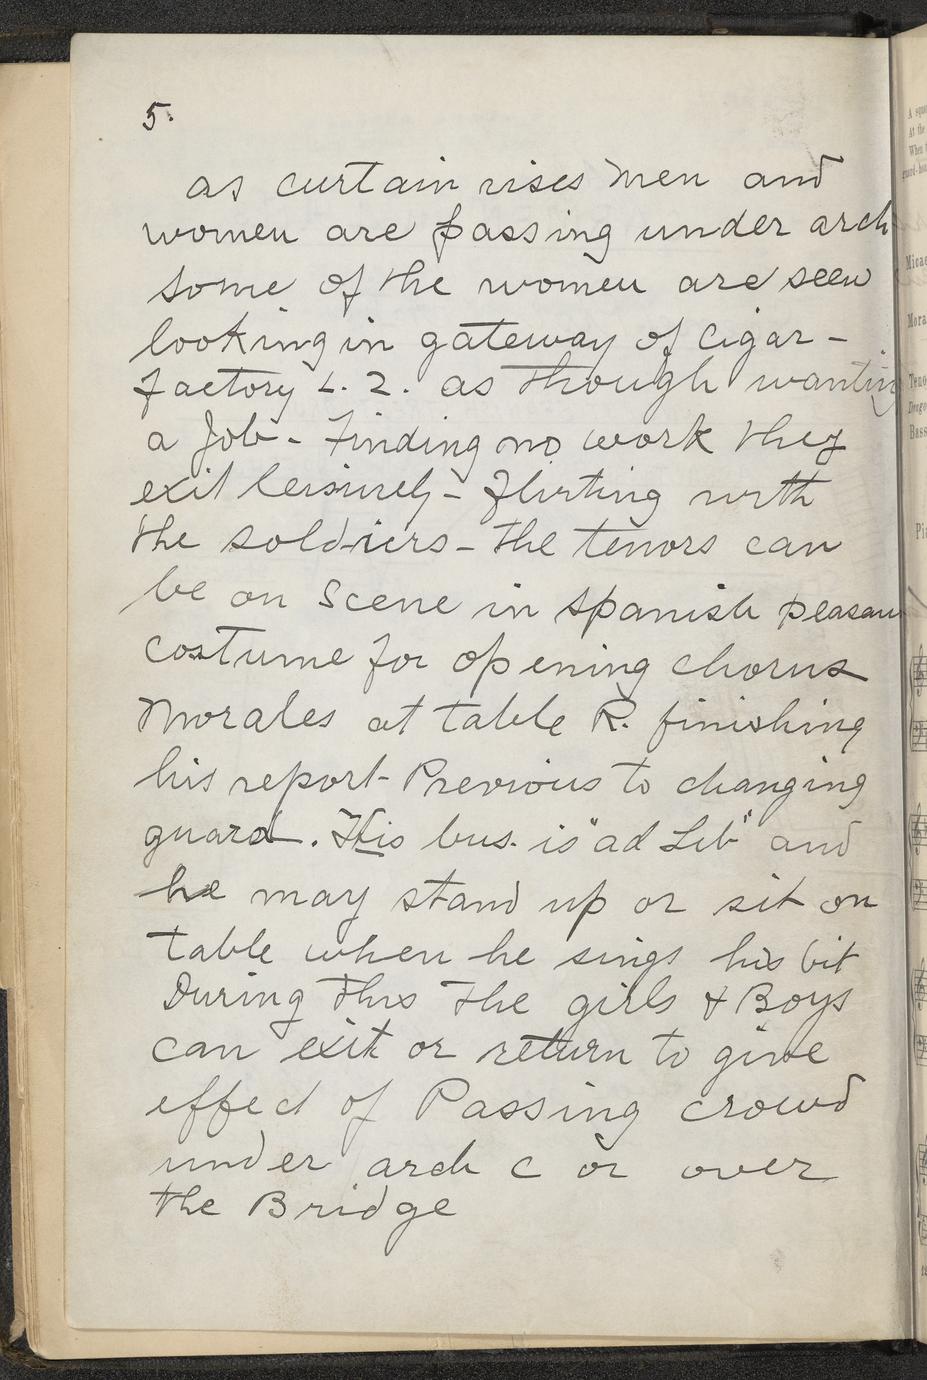 5.
as curtain rises men and
women are passing under arch
some of the women are seen
looking in gateway of cigar -
factory L. 2. as though wanting
a job - Finding no work they
exit leisurely - flirting with
the soldiers - the tenors can
be on scene in spanish peasant
costume for opening chorus
Morales at table R. finishing
his report Previous to changing
guard. His bus. is "ad Lib" and
he may stand up or sit on
table when he sings his bit
During this the girls & Boys
can exit or return to give
effect of Passing crowd
under arch C or over
the Bridge
A squa
At the
When
guard-hou
Micae
Mora
Teno
Drago
Bass